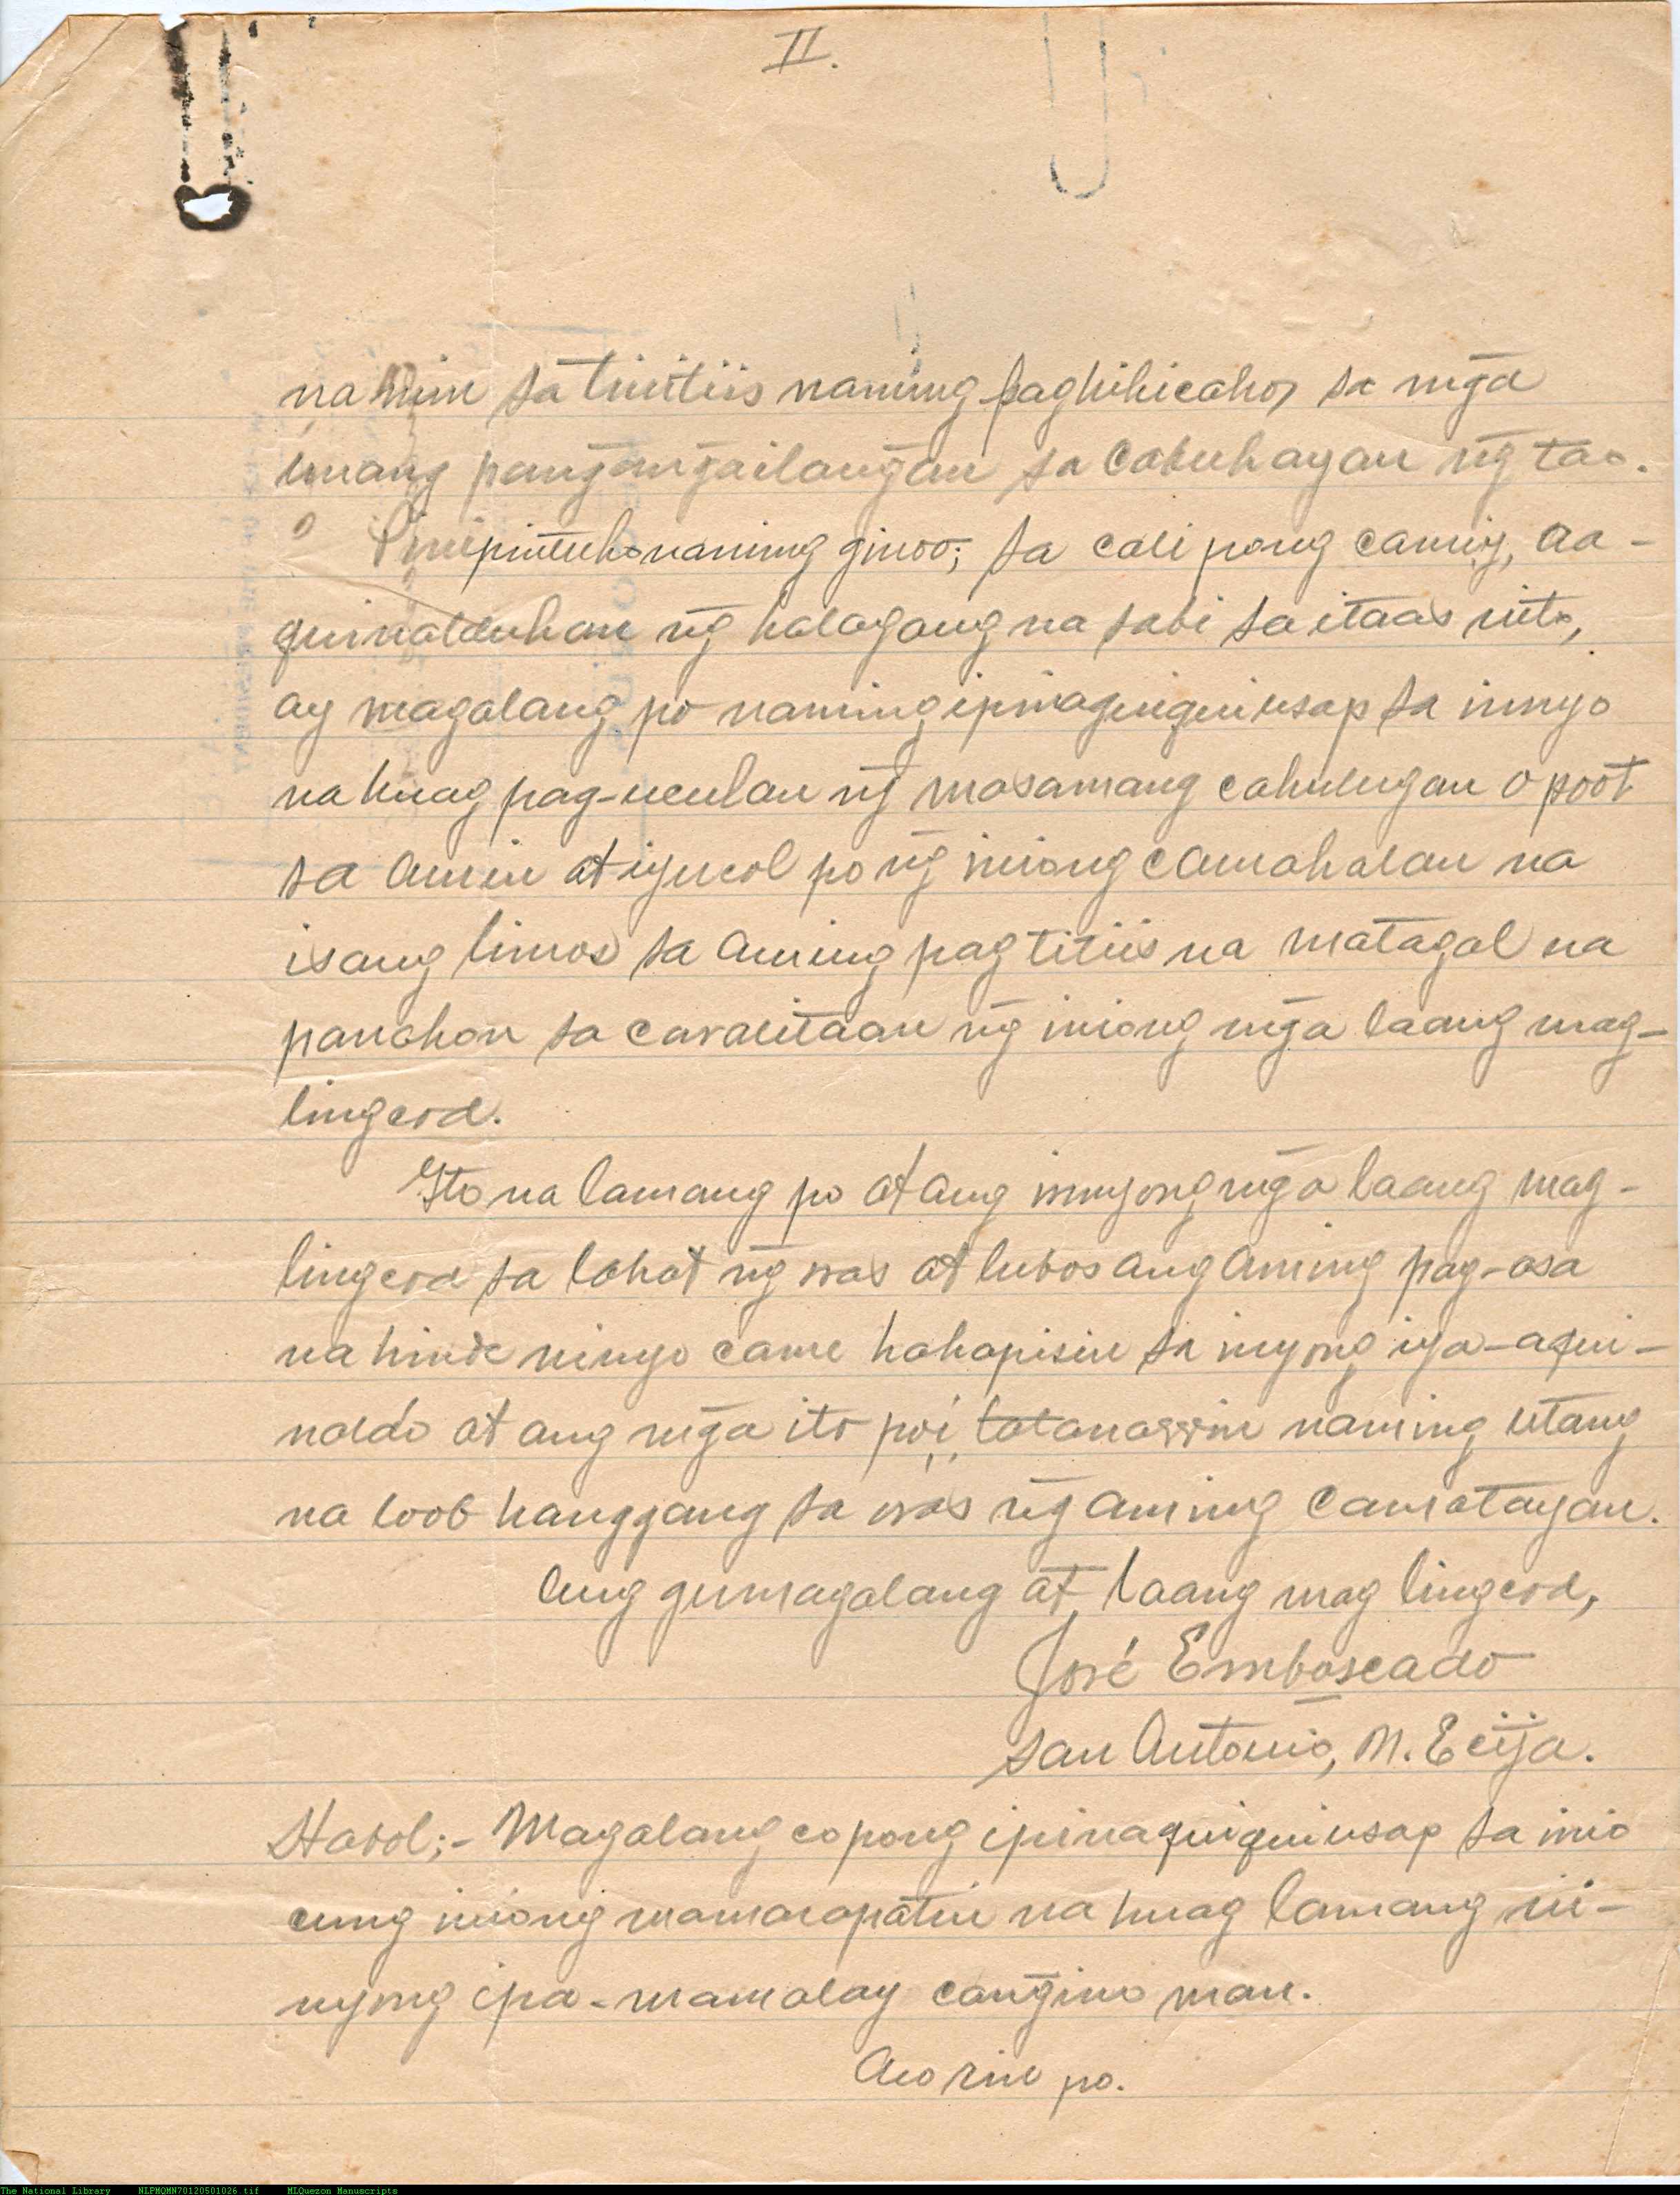 II.
namin sa tinitiis naming paghihicahos sa mga
unang pangangailangan sa cabuhayan ng̃ tao.
Pinipintuho naming ginoo; sa cali pong camiy, aa-
guinalduhan ng̃ halagang na sabi sa itaas nito,
ay magalang po naming ipinaquiquiusap sa innyo
na huag pag-uculan ng̃ masamang cahulugan o poot
sa amin at iyucol po ng̃ iniong camahalan na
isang limos sa aming pagtitiis na matagal na
panahon sa caralitaan ng̃ iniong mg̃a laang mag-
lingcod.
Ito na lamang po at ang innyong mg̃a laang mag-
lingcod sa lahat ng̃ oras at lubos ang aming pag-asa
na hinde ninyo came hahapisin sa inyong iya-aqui-
naldo at ang mg̃a ito poi, tatanawin naming utang
na loob hanggang sa oras ng̃ aming camatayan.
Ang gumagalang at laang mag lingcod,
José Emboscado
San Antonio, N. Ecija.
Habol;- Magalang co pong ipinaquiquiusap sa inio
cung iniong mamarapatin na huag lamang ni-
nyong ipa-mamalay cang̃ino man.
Aco rin po.
The National Library NLPMQMN70120501026.tif MLQuezon Manuscripts